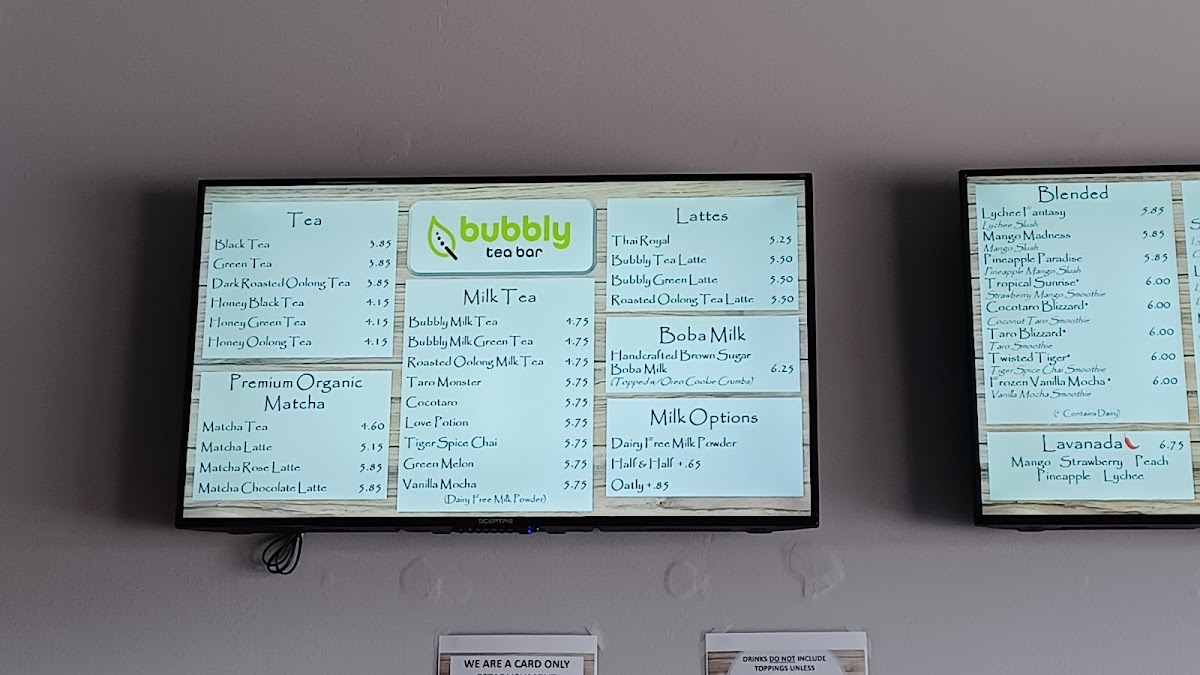 Tea
Black Tea 3.85
Green Tea 3.85
Dark Roasted Oolong Tea 3.85
Honey Black Tea 4.15
Honey Green Tea 4.15
Honey Oolong Tea 4.15
Premium Organic
Matcha
Matcha Tea 4.60
Matcha Latte 5.15
Matcha Rose Latte 5.85
Matcha Chocolate Latte 5.85
bubbly
tea bar
Milk Tea
Bubbly Milk Tea 4.75
Bubbly Milk Green Tea 4.75
Roasted Oolong Milk Tea 4.75
Taro Monster 5.75
Cocotaro 5.75
Love Potion 5.75
Tiger Spice Chai 5.75
Green Melon 5.75
Vanilla Mocha 5.75
(Dairy Free Milk Powder)
Lattes
Thai Royal 5.25
Bubbly Tea Latte 5.50
Bubbly Green Latte 5.50
Roasted Oolong Tea Latte 5.50
Boba Milk
Handcrafted Brown Sugar
Boba Milk 6.25
(Topped w/Oreo Cookie Crumbs)
Milk Options
Dairy Free Milk Powder
Half & Half +.65
Oatly +.85
SCEPTRE
Blended
Lychee Fantasy 5.85
Lychee Slush
Mango Madness 5.85
Mango Slush
Pineapple Paradise 5.85
Pineapple Mango Slush
Tropical Sunrise* 6.00
Strawberry Mango Smoothie
Cocotaro Blizzard* 6.00
Coconut Taro Smoothie
Taro Blizzard* 6.00
Taro Smoothie
Twisted Tiger* 6.00
Tiger Spice Chai Smoothie
Frozen Vanilla Mocha* 6.00
Vanilla Mocha Smoothie
(* Contains Dairy)
Lavanada 6.75
Mango Strawberry Peach
Pineapple Lychee
WE ARE A CARD ONLY
DRINKS DO NOT INCLUDE
TOPPINGS UNLESS